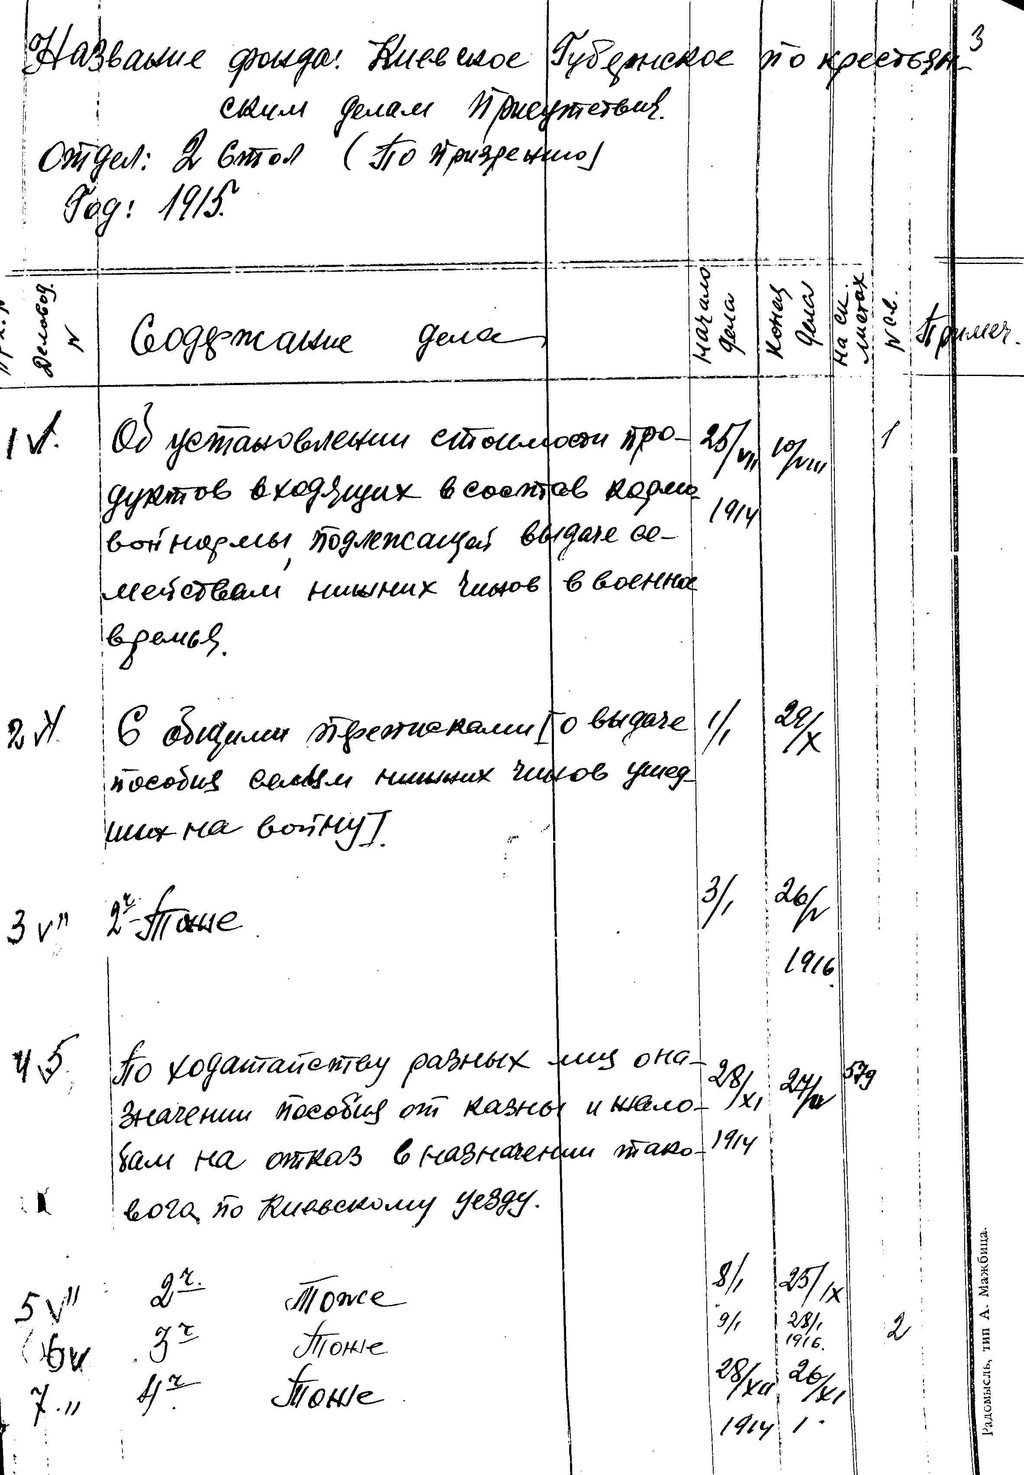 3
Название фонда: Киевское Губернское по крестьян-
ским делам Присутствия.
Отдел: 2 Стол (По призрению)
Год: 1915.
Деловод. N
Содержание дела
начало дела
конец дела
на ск. листах
N св.
Примеч.
1 V1. Об установлении стоимости про- 25/VII 10/VIII 1
дуктов входящих в состав кормо
вой нормы, подлежащей выдаче се- 1914
мействам нижних чинов в военна
время.
2 V4. С общими переписками [о выдаче 1/1 29/X
пособия семьям нижних чинов ушед
ших на войну].
3 V" 2ч Тоже 3/1 26/V
1916.
4 V5. По ходатайству разных лиц о на- 28/XI 579
значении пособия от казны и жало-
бам на отказ в назначении тако- 1914
вога по Киевскому уезду.
5 V" 2ч. Тоже 8/1 25/IX
6 V 3ч Тоже 9/1 28/1 1916. 2
7." 4ч. Тоже 28/XII 26/XI
1914
Радомысль, тип А. Мажбица.